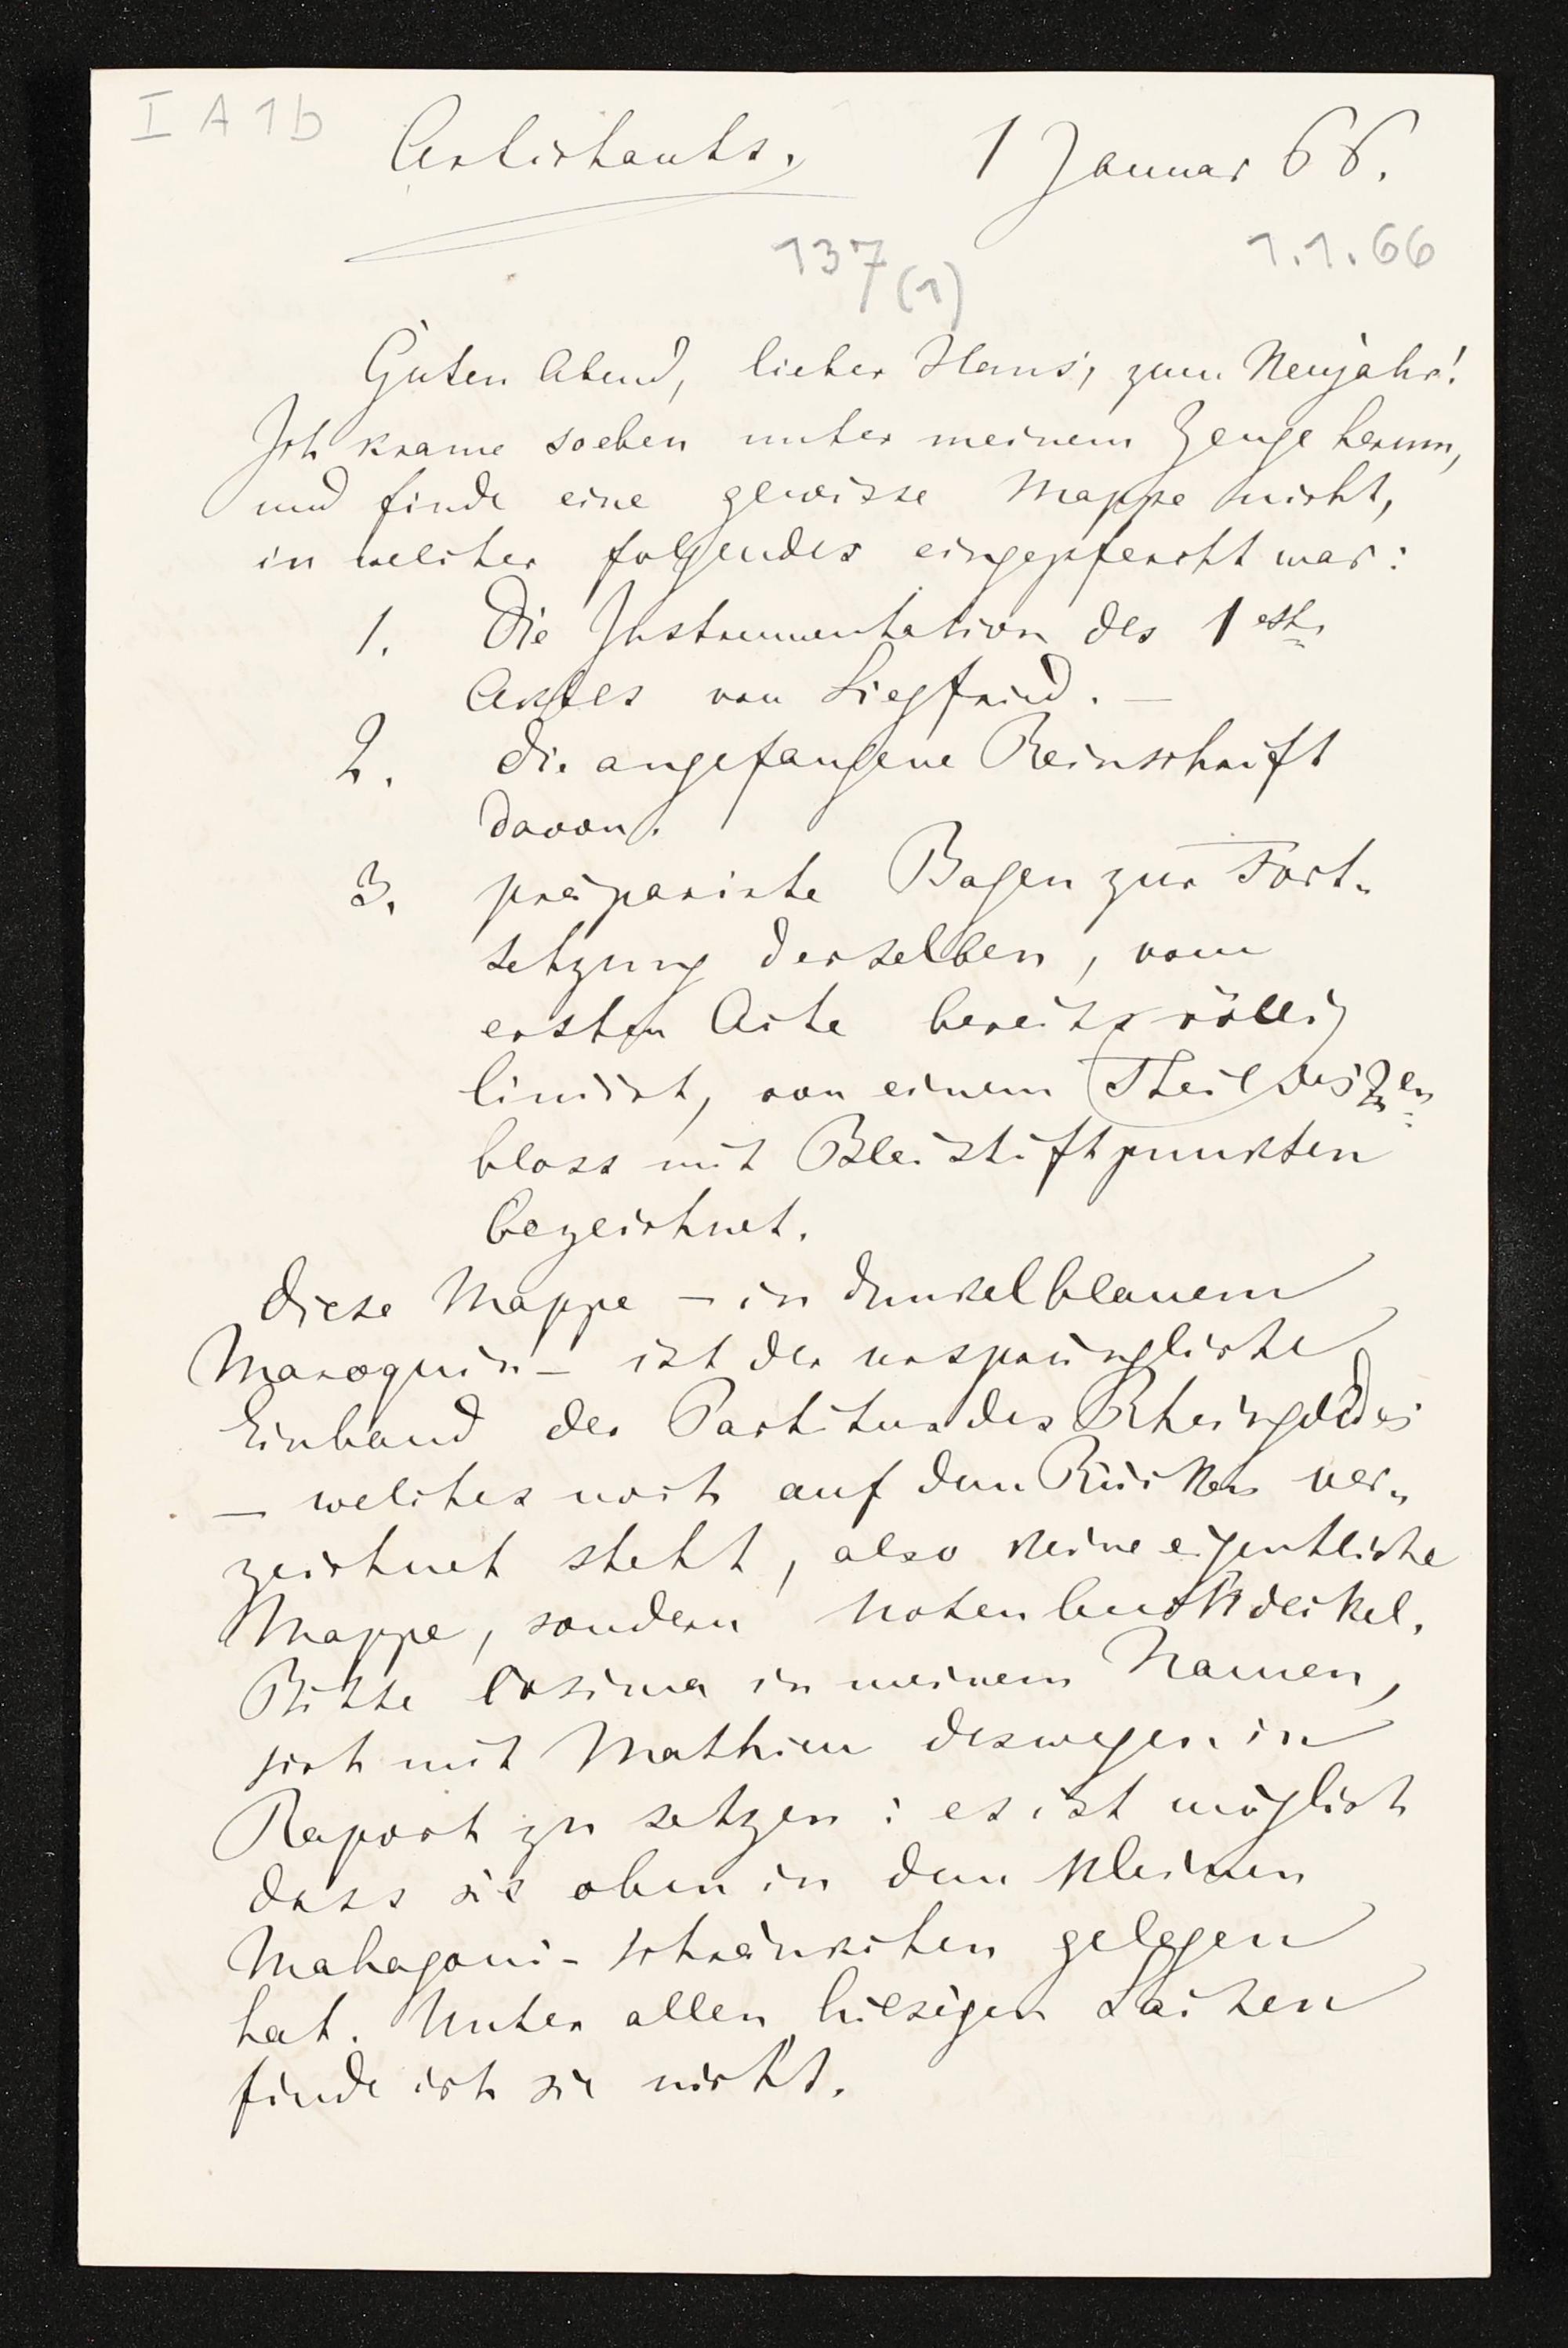 I A 1 b
Artichauts. 1 Januar 66.
137 (1) 1.1.66
Guten Abend, lieber Hans, zum Neujahr!
Ich krame soeben unter meinem Zeuge herum,
und finde eine gewisse Mappe nicht,
in welcher folgendes eingepfercht war:
1. Die Instrumentation des 1 est.
Actes von Siegfried. —
2. die angefangene Reinschrift
davon.
3. präparirte Bogen zur Fort-
setzung derselben, vom
ersten Acte bereits völlig
liniirt, von einem Theil des 2en
bloss mit Bleistiftpunkten
bezeichnet.
Diese Mappe — in dunkelblauem
Maroquin — ist der ursprüngliche
Einband der Partitur des Rheingoldes
— welches noch auf dem Rücken ver-
zeichnet steht, also keine eigentliche
Mappe, sondern Notenbuchdeckel.
Bitte Cosima in meinem Namen,
sich mit Mathieu deswegen in
Raport zu setzen: es ist möglich
dass sie oben in dem kleinen
Mahagoni-schränkchen gelegen
hat. Unter allen hiesigen Sachen
finde ich sie nicht.